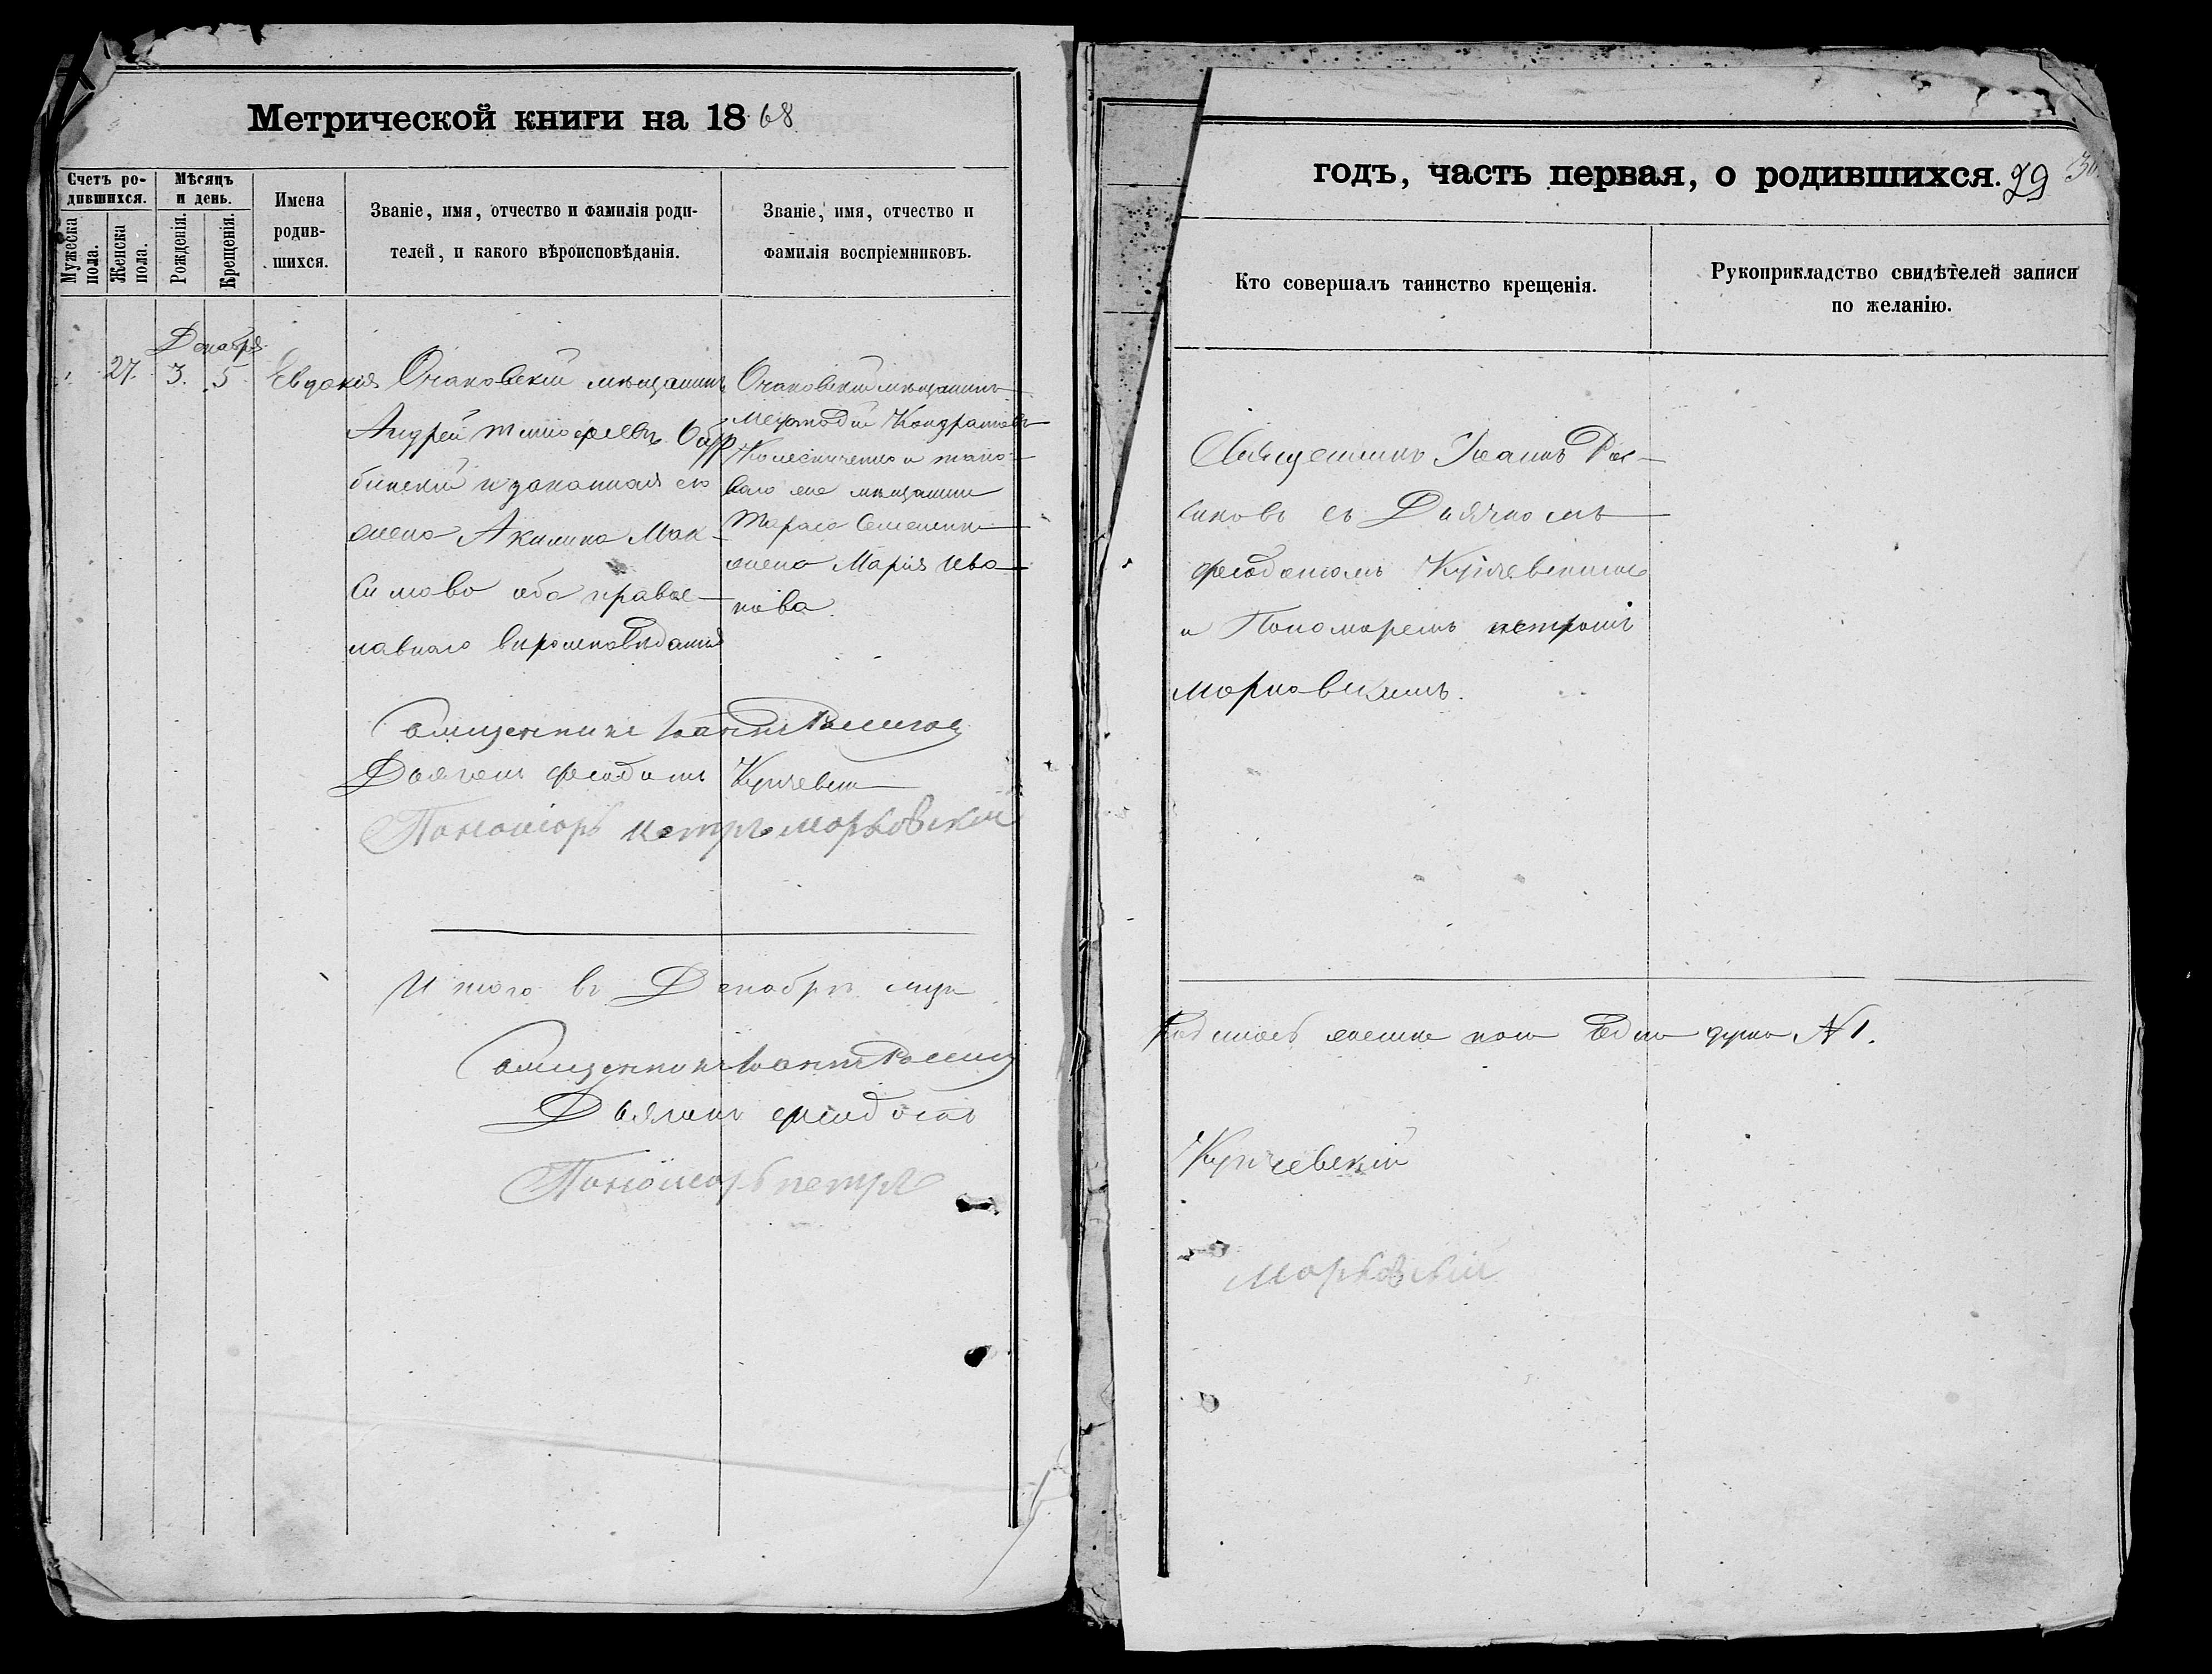 Метрической книги на 1868
Счетъ ро-
дившихся.
Мужеска
пола.
Женска
пола.
Мѣсяцъ
и день.
Рожденія.
Крещенія.
Имена
родив-
шихся.
Званіе, имя, отчество и фамилія роди-
телей, и какого вѣроисповѣданія.
Званіе, имя, отчество и
фамилія воспріемниковъ.
Декабря
27. 3. 5
Евдокія
Очаковскій мѣщанинъ
Андрей
бинскій и законная его
жена Акилина Мак-
симова оба правос-
лавнаго вѣроисповѣданія
Очаковскій мѣщанинъ
Мефтодій Кондратьевъ
Колесниченко и тако-
ваго же мѣщанина
Тараса Семененка
жена Марія Ива-
нова.
Священникъ Іоаннъ
Дьячекъ Феодотъ
Пономарь Петръ Марковскій
Итого въ Декабрѣ мцѣ
Священникъ Іоаннъ
Дьячекъ Феодотъ
Пономарь Петръ
годъ, часть первая, о родившихся. 29 30
Кто совершалъ таинство крещенія.
Рукоприкладство свидѣтелей записи
по желанію.
Священникъ Іоаннъ
съ Дьячкомъ
Феодотомъ
и Пономаремъ Петромъ
Марковскимъ.
Родилось женска пола одна душа № 1.
Марковскій